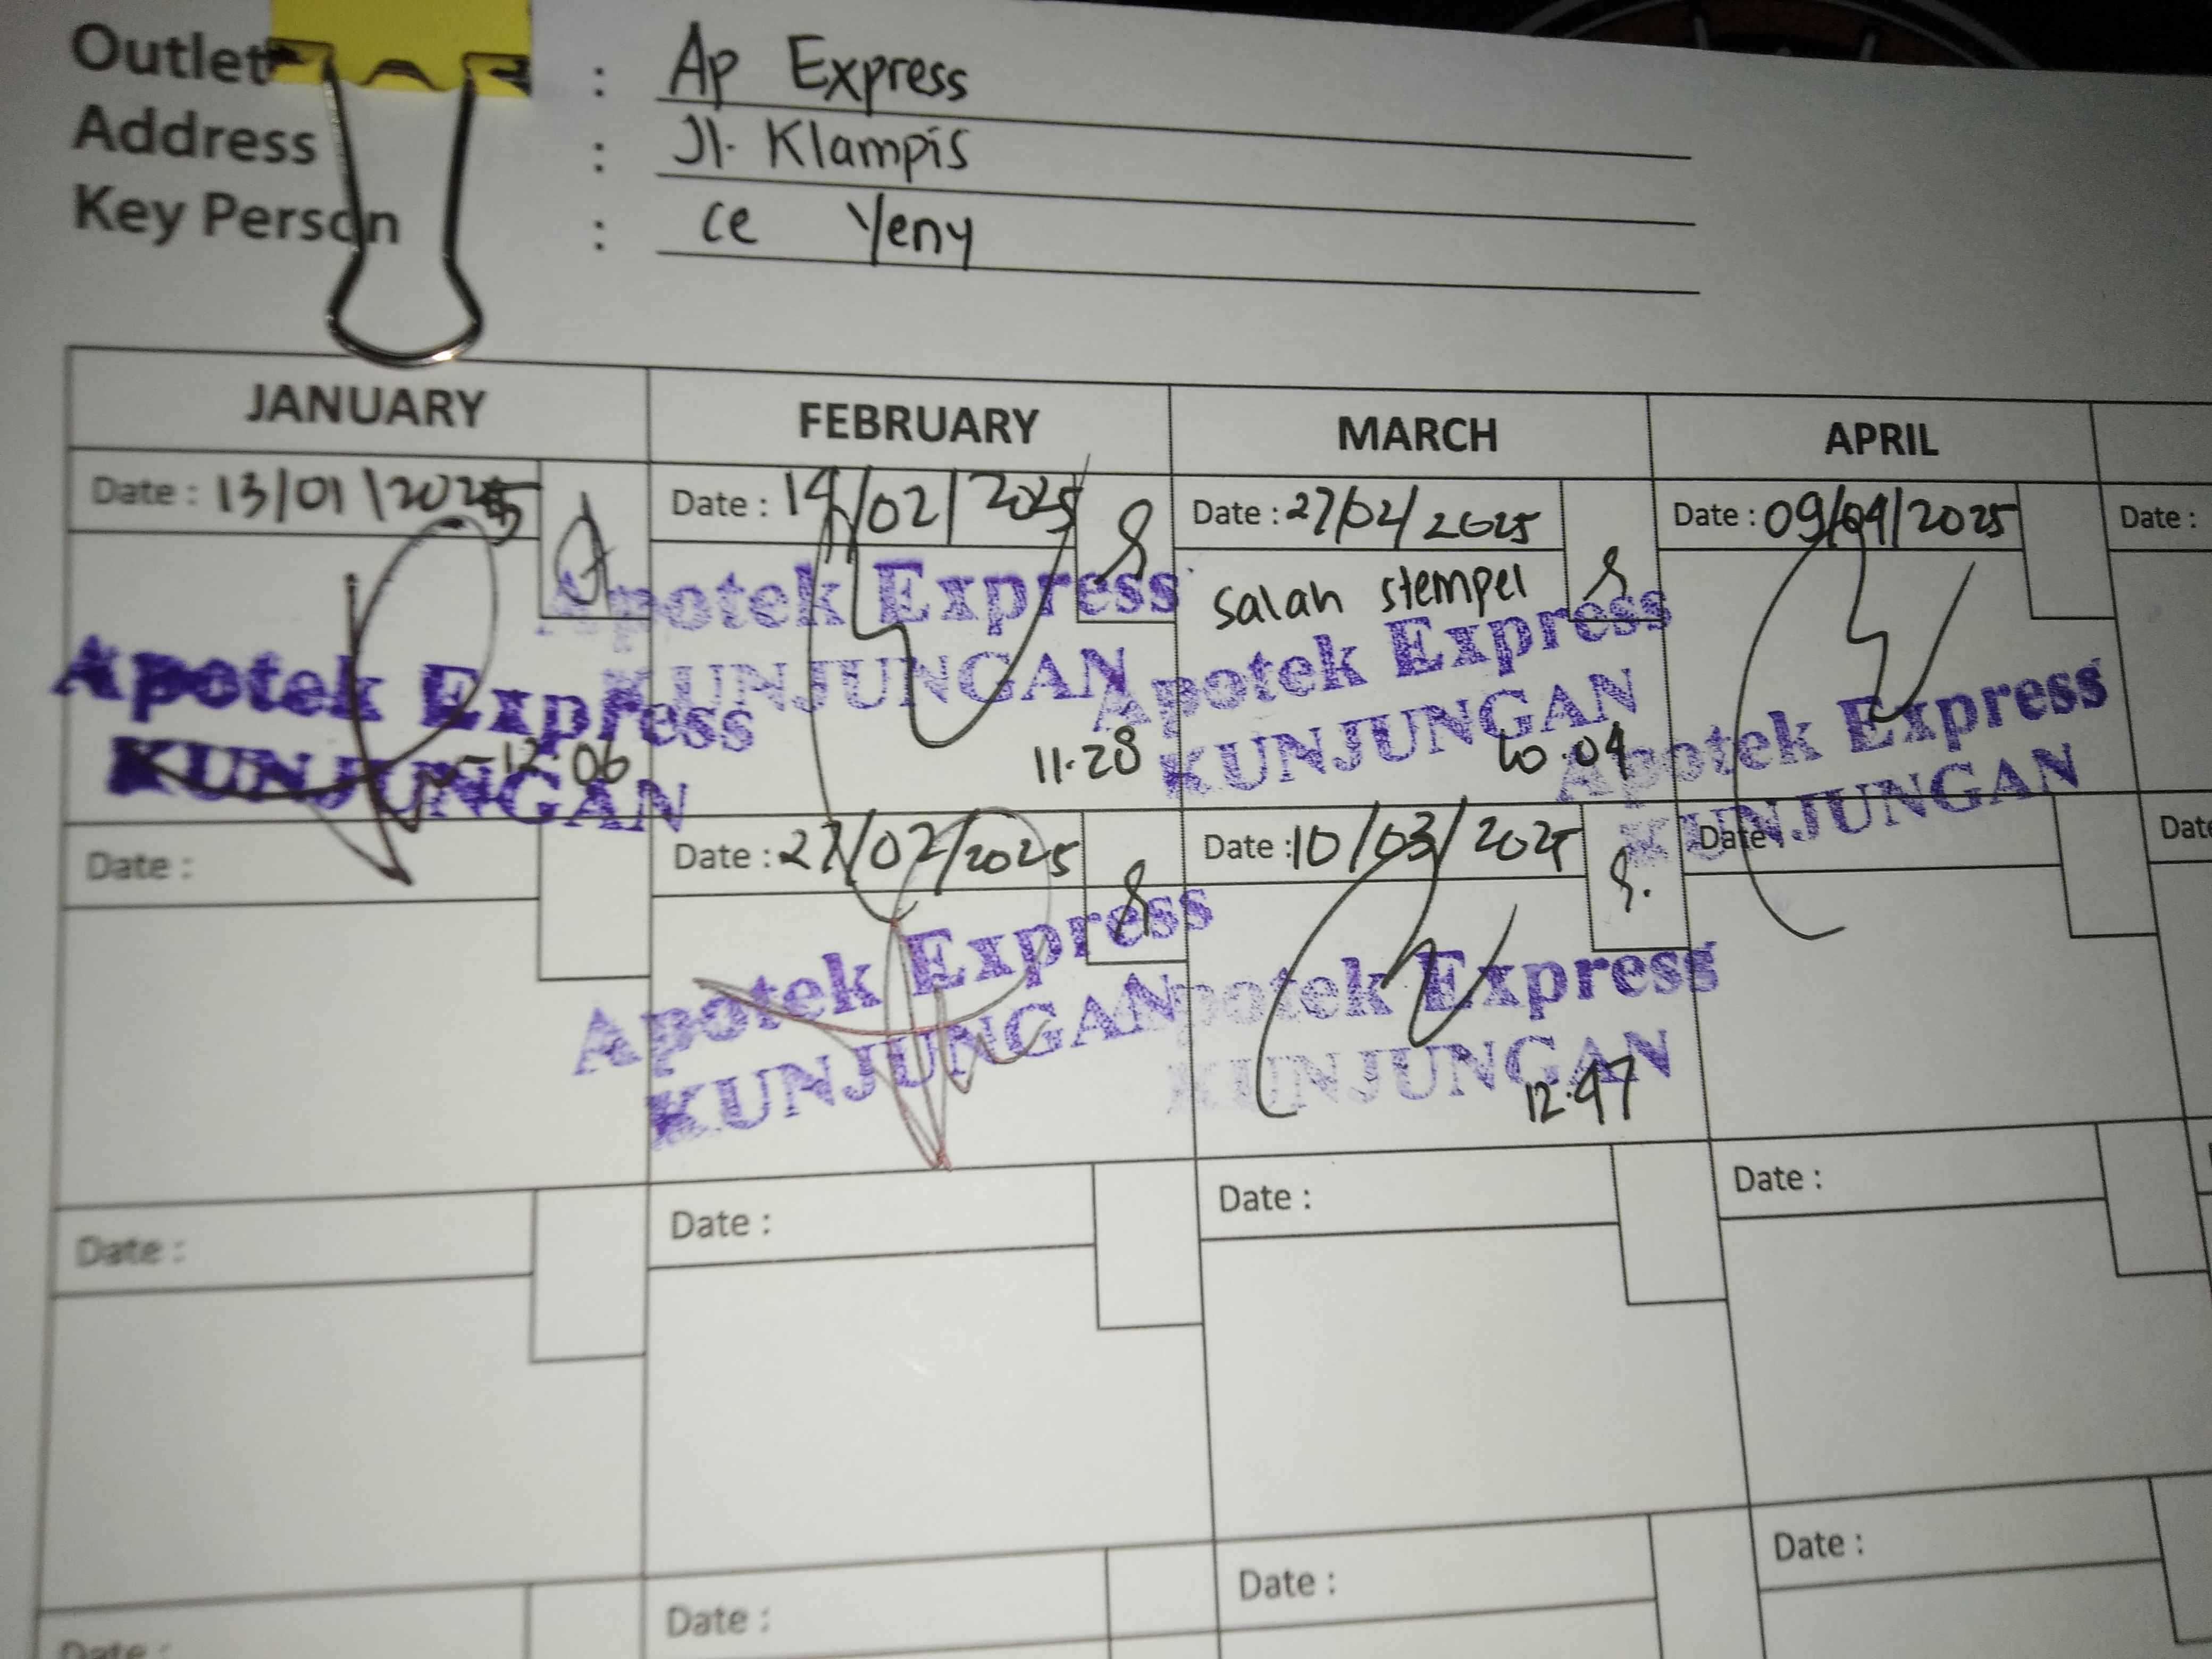 Outlet : Ap Express
Address : Jl. Klampis
Key Person : ce Yeny
JANUARY FEBRUARY MARCH APRIL
Date : 13/01/2025 Date : 14/02/2025 Date : 27/02/2025 Date : 09/04/2025 Date :
Salah stempel
Apotek Express Apotek Express Apotek Express Apotek Express
KUNJUNGAN KUNJUNGAN KUNJUNGAN KUNJUNGAN
12:06 11.28 10.04
Date : Date : 27/02/2025 Date : 10/03/2025 Date : Date
Apotek Express Apotek Express
KUNJUNGAN KUNJUNGAN
12.47
Date : Date : Date : Date :
Date : Date : Date : Date :